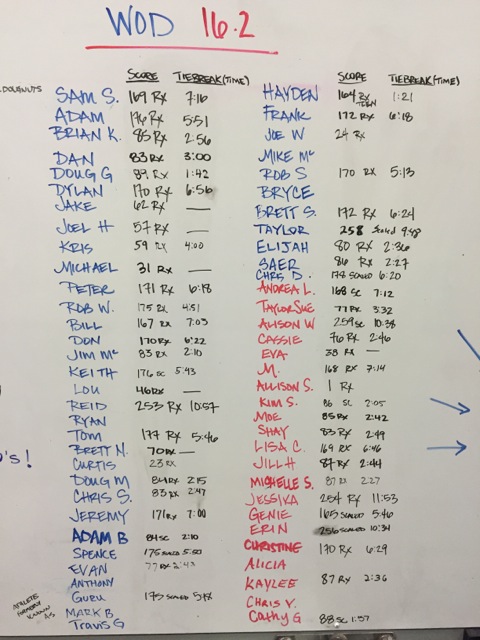 WOD 16.2
SCORE TIEBREAK(TIME)
DOUGHNUTS
SAM S. 169 RX 7:16
ADAM 176 RX 5:51
BRIAN K. 85 RX 2:56
DAN 83 RX 3:00
DOUG G 89 RX 1:42
DYLAN 170 RX 6:56
JAKE 62 RX —
JOEL H 57 RX —
KRIS 59 RX 4:00
MICHAEL 31 RX —
PETER 171 RX 6:18
ROB W. 175 RX 4:51
BILL 167 RX 7:03
DON 170 RX 6:22
JIM Mc 83 RX 2:10
KEITH 176 SC 5:43
LOU 46 RX —
REID 253 RX 10:57
RYAN
TOM 177 RX 5:46
BRETT N. 70 RX —
CURTIS 23 RX
DOUG M 84 RX 2:15
CHRIS S. 83 RX 2:47
JEREMY 171 RX 7:00
ADAM B 84 SC 2:10
SPENCE 175 SCALED 5:50
EVAN 77 RX 2:43
ANTHONY
GURU 175 SCALED 5:18
MARK B
TRAVIS G
ATHLETE FORMERLY KNOWN AS
'S!
SCORE TIEBREAK(TIME)
HAYDEN 164 RX 1:21
FRANK 172 RX 6:18
JOE W 24 RX
MIKE Mc
ROB S 170 RX 5:13
BRYCE
BRETT S. 172 RX 6:24
TAYLOR 258 Scaled 9:48
ELIJAH 80 RX 2:36
SAER 86 RX 2:27
CHRIS D. 178 SCALED 6:20
ANDREA L. 168 SC 7:12
TAYLOR SUE 77 RX 3:32
ALISON W 259 SC 10:38
CASSIE 76 RX 2:46
EVA 38 RX —
M. 168 RX 7:14
ALLISON S. 1 RX
KIM S. 86 SC 2:05
MOE 85 RX 2:42
SHAY 83 RX 2:49
LISA C. 169 RX 6:46
JILL H 87 RX 2:44
MICHELLE S. 87 RX 2:27
JESSIKA 254 RX 11:53
GENIE 165 SCALED 5:46
ERIN 256 SCALED 10:34
CHRISTINE 170 RX 6:29
ALICIA
KAYLEE 87 RX 2:36
CHRIS V.
Cathy G 88 SC 1:57